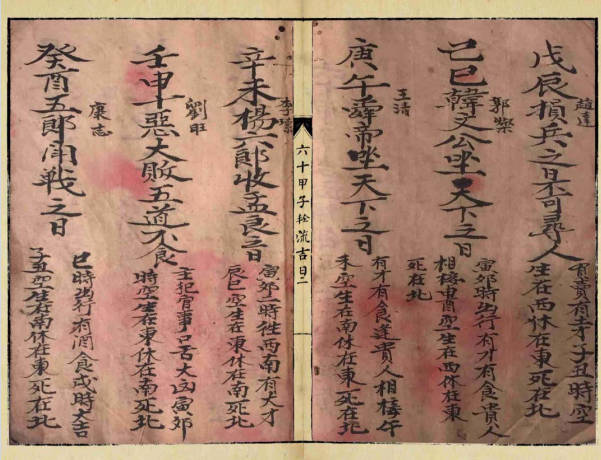 趙達
戊辰損兵之日不可尋人
有貴有才子丑時空
生在西休在東死在北
郭燦
己巳韓文公坐天下之日
寅卯時出行有才有食貴人
相接申酉空生在西休在東
死在北
王清
庚午舜帝坐天下之日
有才有食逢貴人相接午
未空生在南休在東死在北
六十甲子流古日二
李
辛未楊六郎收孟良之日
寅卯二時往西南有大才
辰巳空生在東休在南死北
劉旺
壬申十惡大敗五道不食
主犯官事口舌大凶寅卯
時空生在東休在南死北
康志
癸酉五郎開戰之日
巳時出行有酒食戌時大吉
子丑空生在南休在東死在北